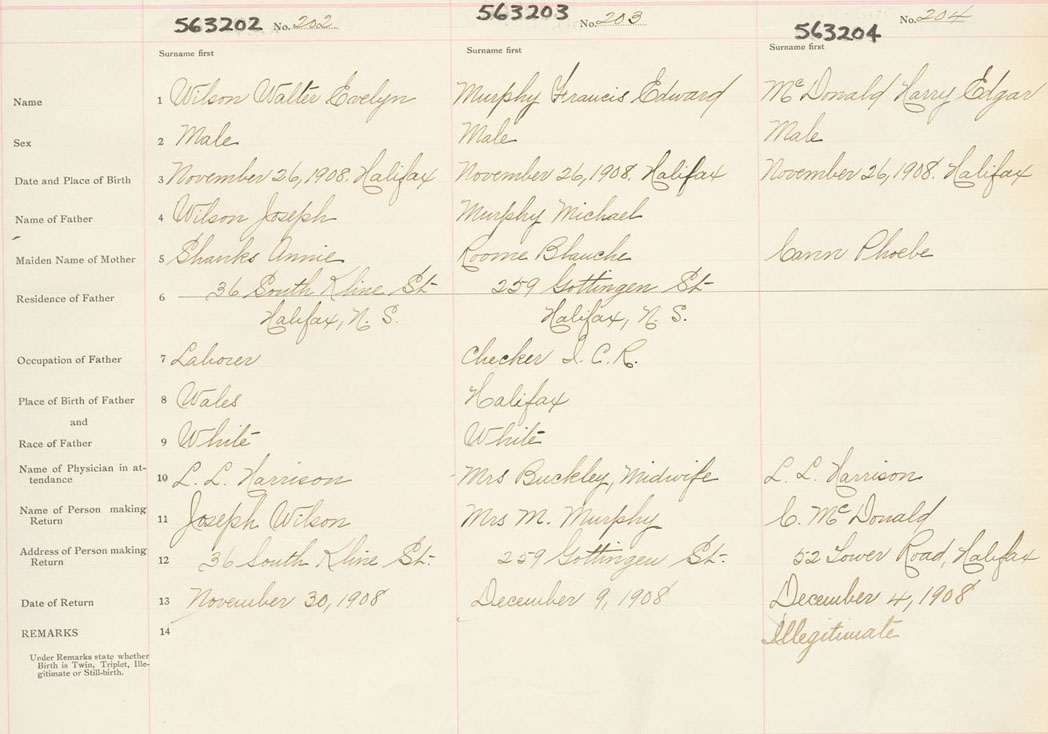 563202 No. 202 563203 No. 203 563204 No. 204
Surname first Surname first Surname first
Name 1 Wilson Walter Evelyn Murphy Francis Edward McDonald Harry Edgar
Sex 2 Male Male Male
Date and Place of Birth 3 November 26, 1908. Halifax November 26, 1908. Halifax November 26, 1908. Halifax
Name of Father 4 Wilson Joseph Murphy Michael
Maiden Name of Mother 5 Shanks Annie Roome Blanche Cann Phoebe
Residence of Father 6 36 South Kline St. 259 Gottingen St.
Halifax, N. S. Halifax, N. S.
Occupation of Father 7 Laborer Checker I. C. R.
Place of Birth of Father 8 Wales Halifax
and
Race of Father 9 White White
Name of Physician in at-
tendance 10 L. L. Harrison Mrs Buckley, Midwife L. L. Harrison
Name of Person making
Return 11 Joseph Wilson Mrs M. Murphy C. McDonald
Address of Person making
Return 12 36 South Kline St. 259 Gottingen St. 52 Lower Road, Halifax
Date of Return 13 November 30, 1908 December 9, 1908 December 4, 1908
REMARKS 14 Illegitimate
Under Remarks state whether
Birth is Twin, Triplet, Ille-
gitimate or Still-birth.